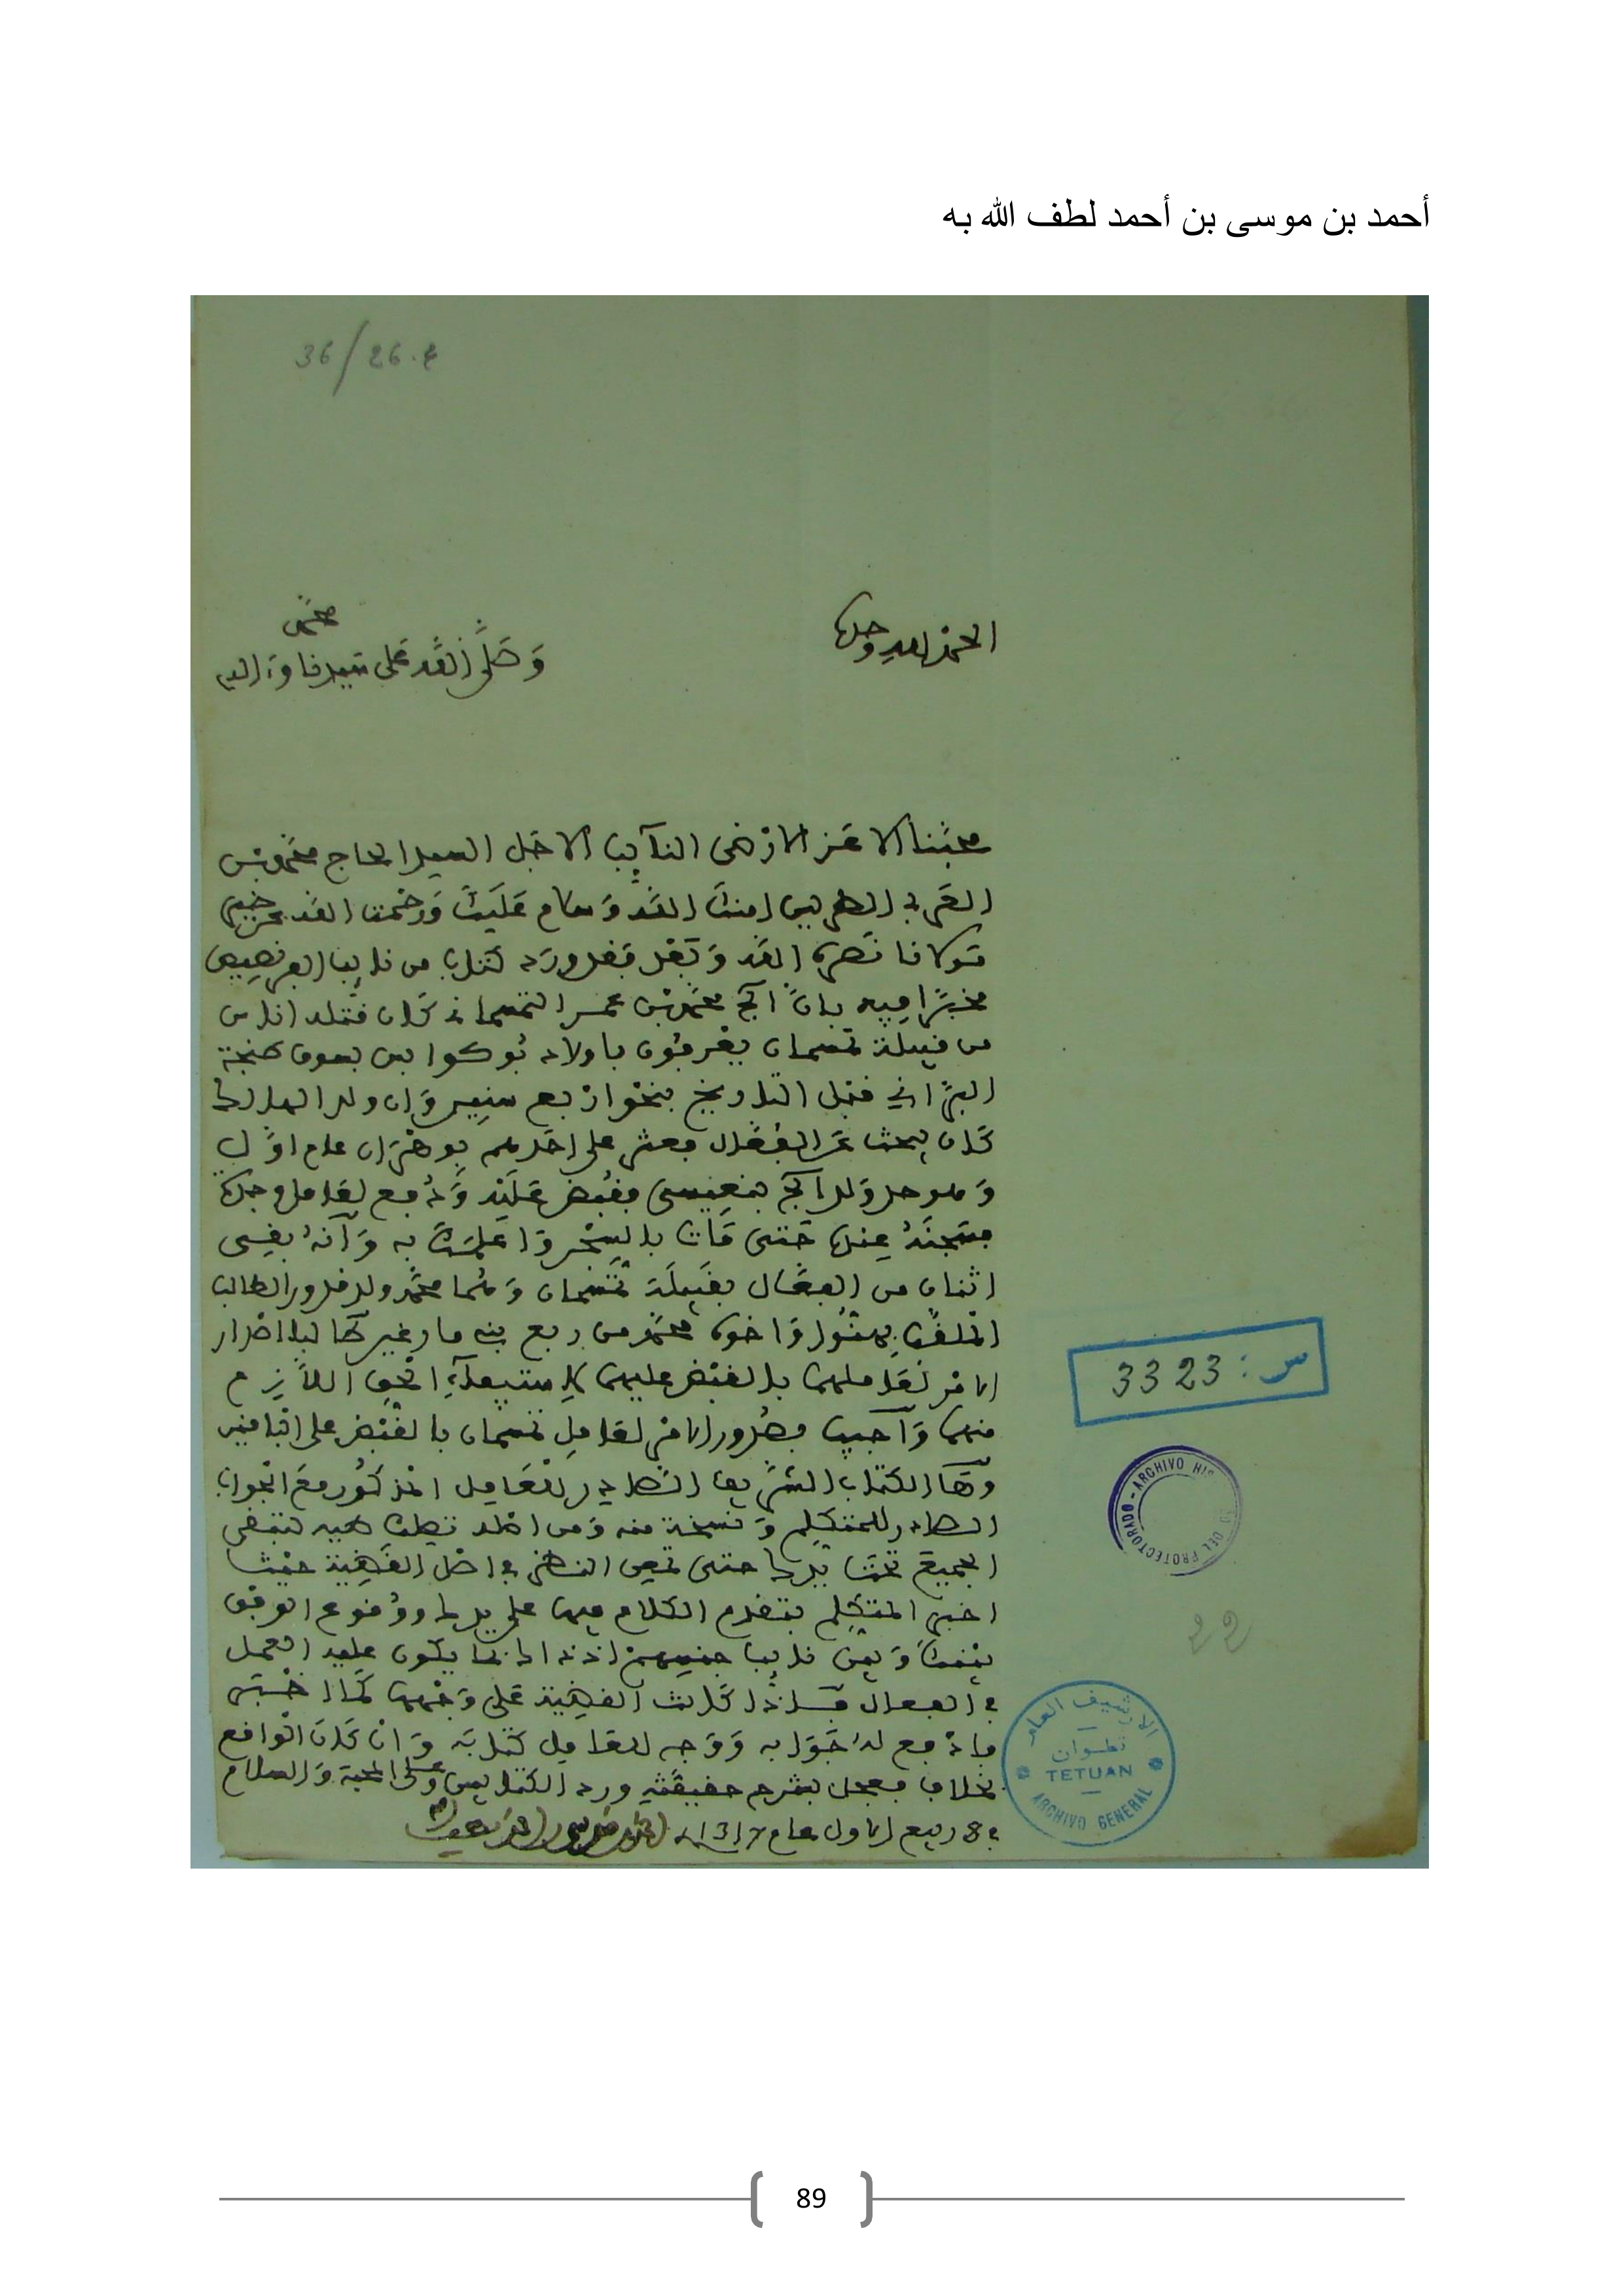 أحمد بن موسى بن أحمد لطف الله به
36/26.4
الحمد لله وحده
وصلى الله على سيدنا محمد وآله
محبنا الاعز الارضى النائب الاجل السيد الحاج محمد بن
العربي الطريس امنك الله وسلام عليك ورحمت الله عن خير
مولانا نصره الله وبعد فقد ورد كتاب من نايب الفرنصيص
مخبرا فيه بان الحاج محمد بن عمر التمسماني كان قتله اناس
من قبيلة تمسمان يعرفون باولاد بوكوا بين بسوق طنجة
البراني قبل التاريخ بنحو اربع سنين وان ولد الهالك
كان يبحث عن القتال فعثر على احدهم بوهران عام اول
وهو حدو ولد الحاج بنعيسى فقبض عليه ودفع لعامل وجدة
فسجنه عنده حتى مات بالسجن واعلمك به وانه بقي
اثنان من القتال بقبيلة تمسمان وهما محمد ولد قدور الطالب
الملقب واخوه محمد من ربع بني
الامر لعاملهما بالقبض عليهما لاستيفاء الحق اللازم
منهما واجيب بصدور الامر لعامل تمسمان بالقبض على الباقين
وها الكتاب الشريف الصادر للعامل المذكور مع الجواب
الصادر للمتكلم ونسخة منه ومن اصله تصلك طيه لتبقى
الجميع تحت يدك حتى تمعن النظر في اصل القضية حيث
اخبر المتكلم بتقدم الكلام فيها على يدك ووقوع الوفق
بينك وبين نايب جنسهم اذ ذاك بما يكون عليه العمل
في القتال فاذا كانت القضية على وجهها كما اخبر
فادفع له جوابه ووجه للعامل كتابه وان كان الواقع
بخلاف فعجل بشرح حقيقته ورد الكتابين وعلى المحبة والسلام
في 8 ربيع الاول عام 1317 احمد بن موسى بن احمد لطف الله به
س: 3323
ARCHIVO HIS
DEL PROTECTORADO
22
الارشيف العام
تطوان
TETUAN
ARCHIVO GENERAL
89